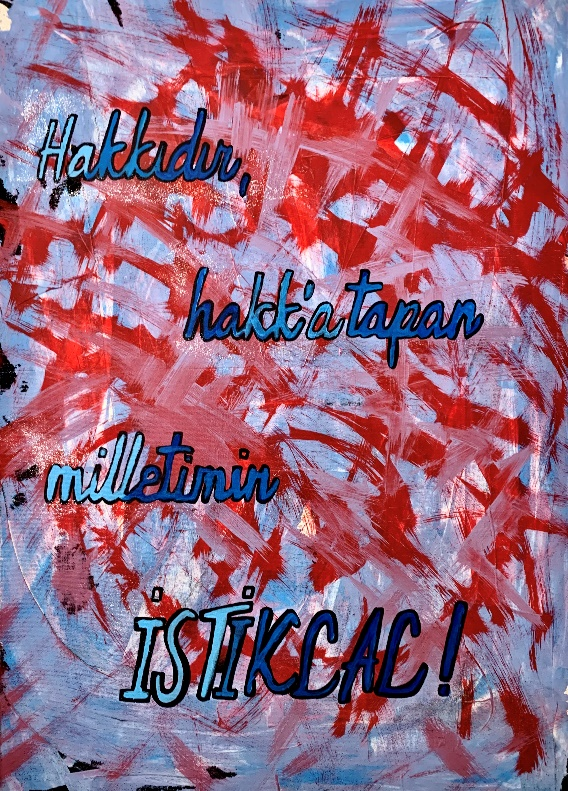 Hakkıdır,
hakk'a tapan
milletimin
İSTİKLAL!